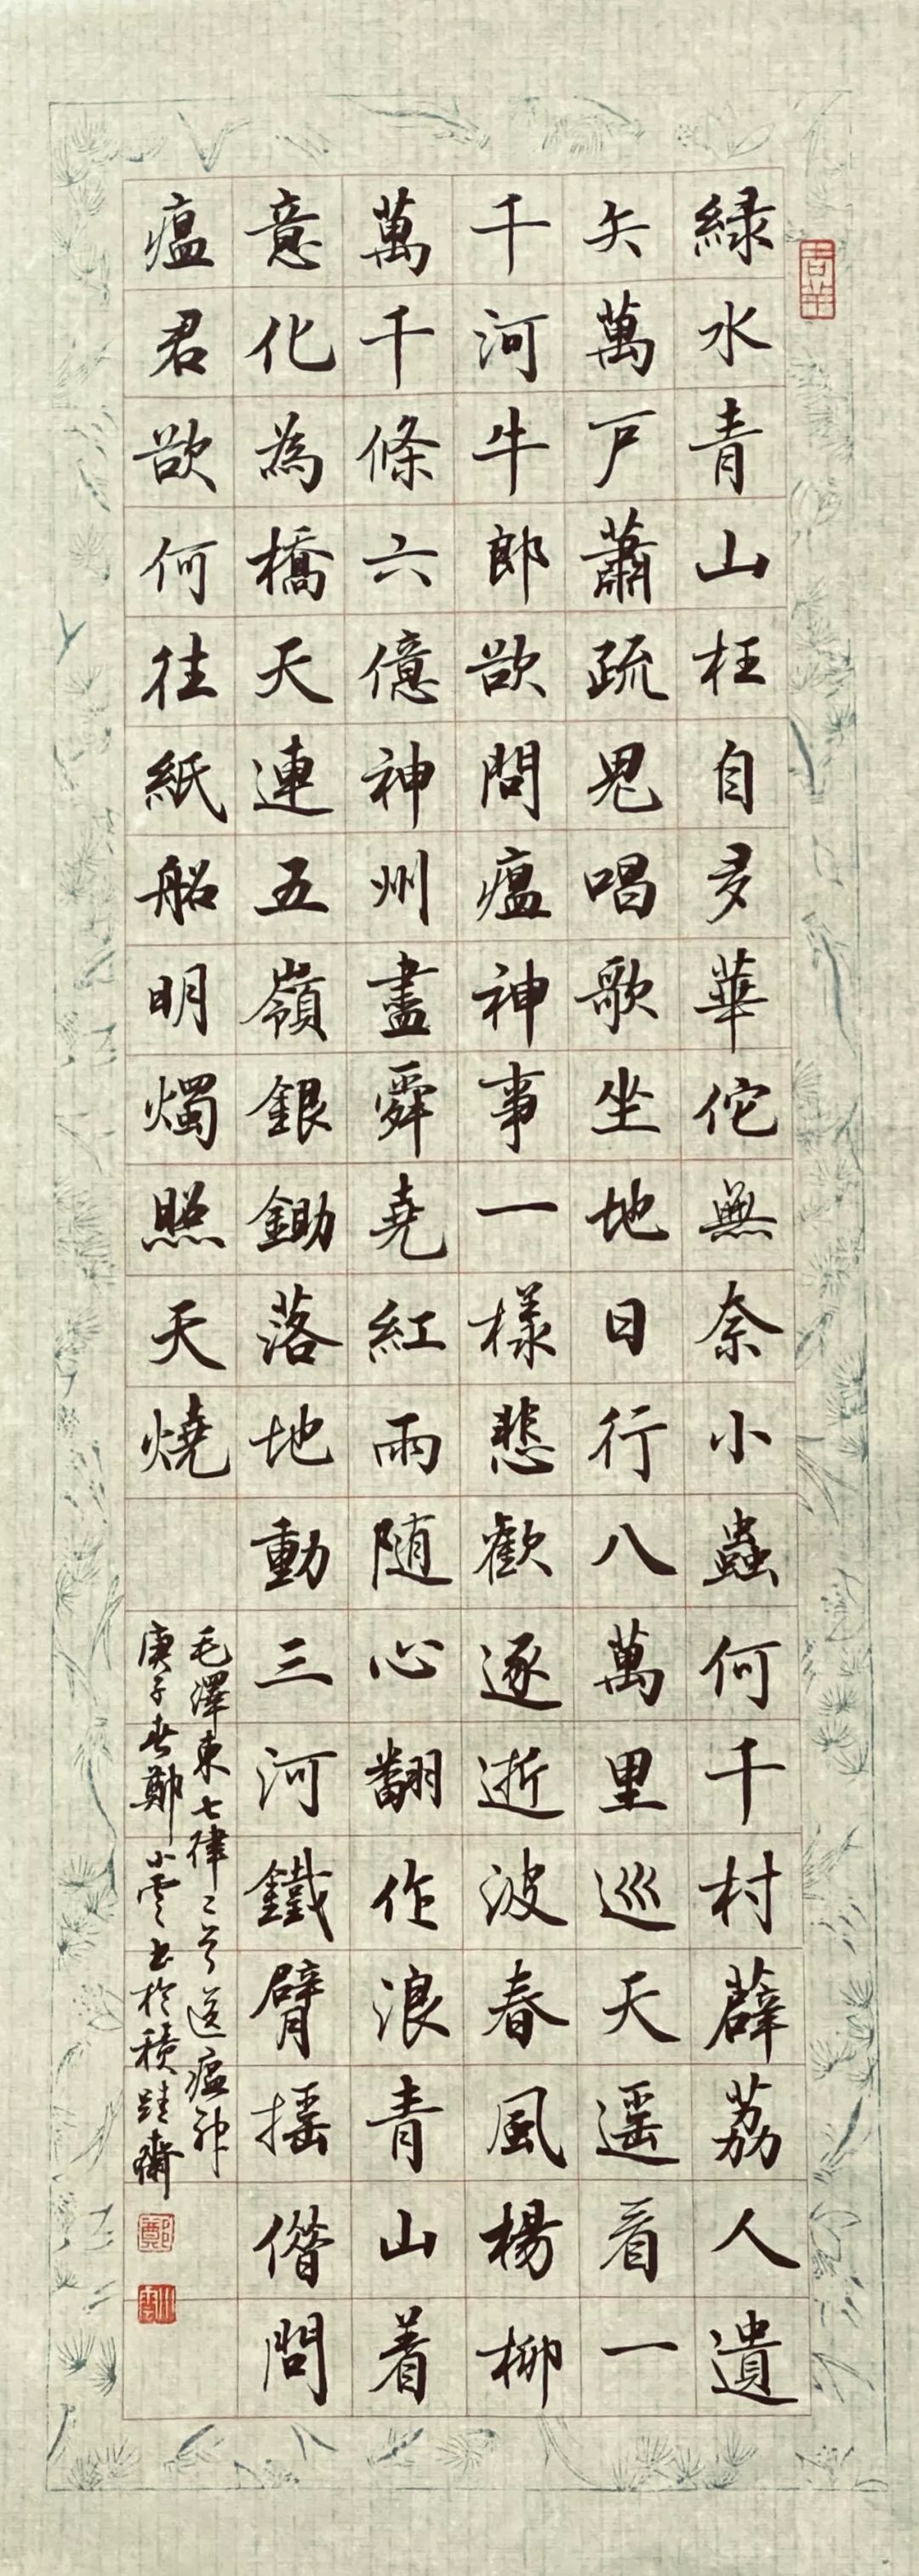 緑水青山枉自多華佗無奈小蟲何千村薜荔人遺
矢萬户蕭疏鬼唱歌坐地日行八萬里巡天遥看一
千河牛郎欲問瘟神事一樣悲歡逐逝波春風楊柳
萬千條六億神州盡舜堯紅雨随心翻作浪青山着
意化為橋天連五嶺銀鋤落地動三河鐵臂摇借問
瘟君欲何往紙船明燭照天燒
毛澤東七律二首送瘟神
庚子春鄭小雲書於積跬齋
吉羊
鄭
小雲